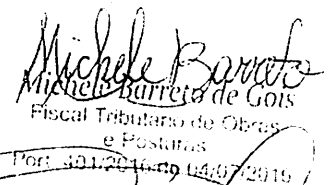 Michele Barreto
Michele Barreto de Gois
Fiscal Tributario de Obras
e Posturas
Port. 401/2016 de 04/07/2019